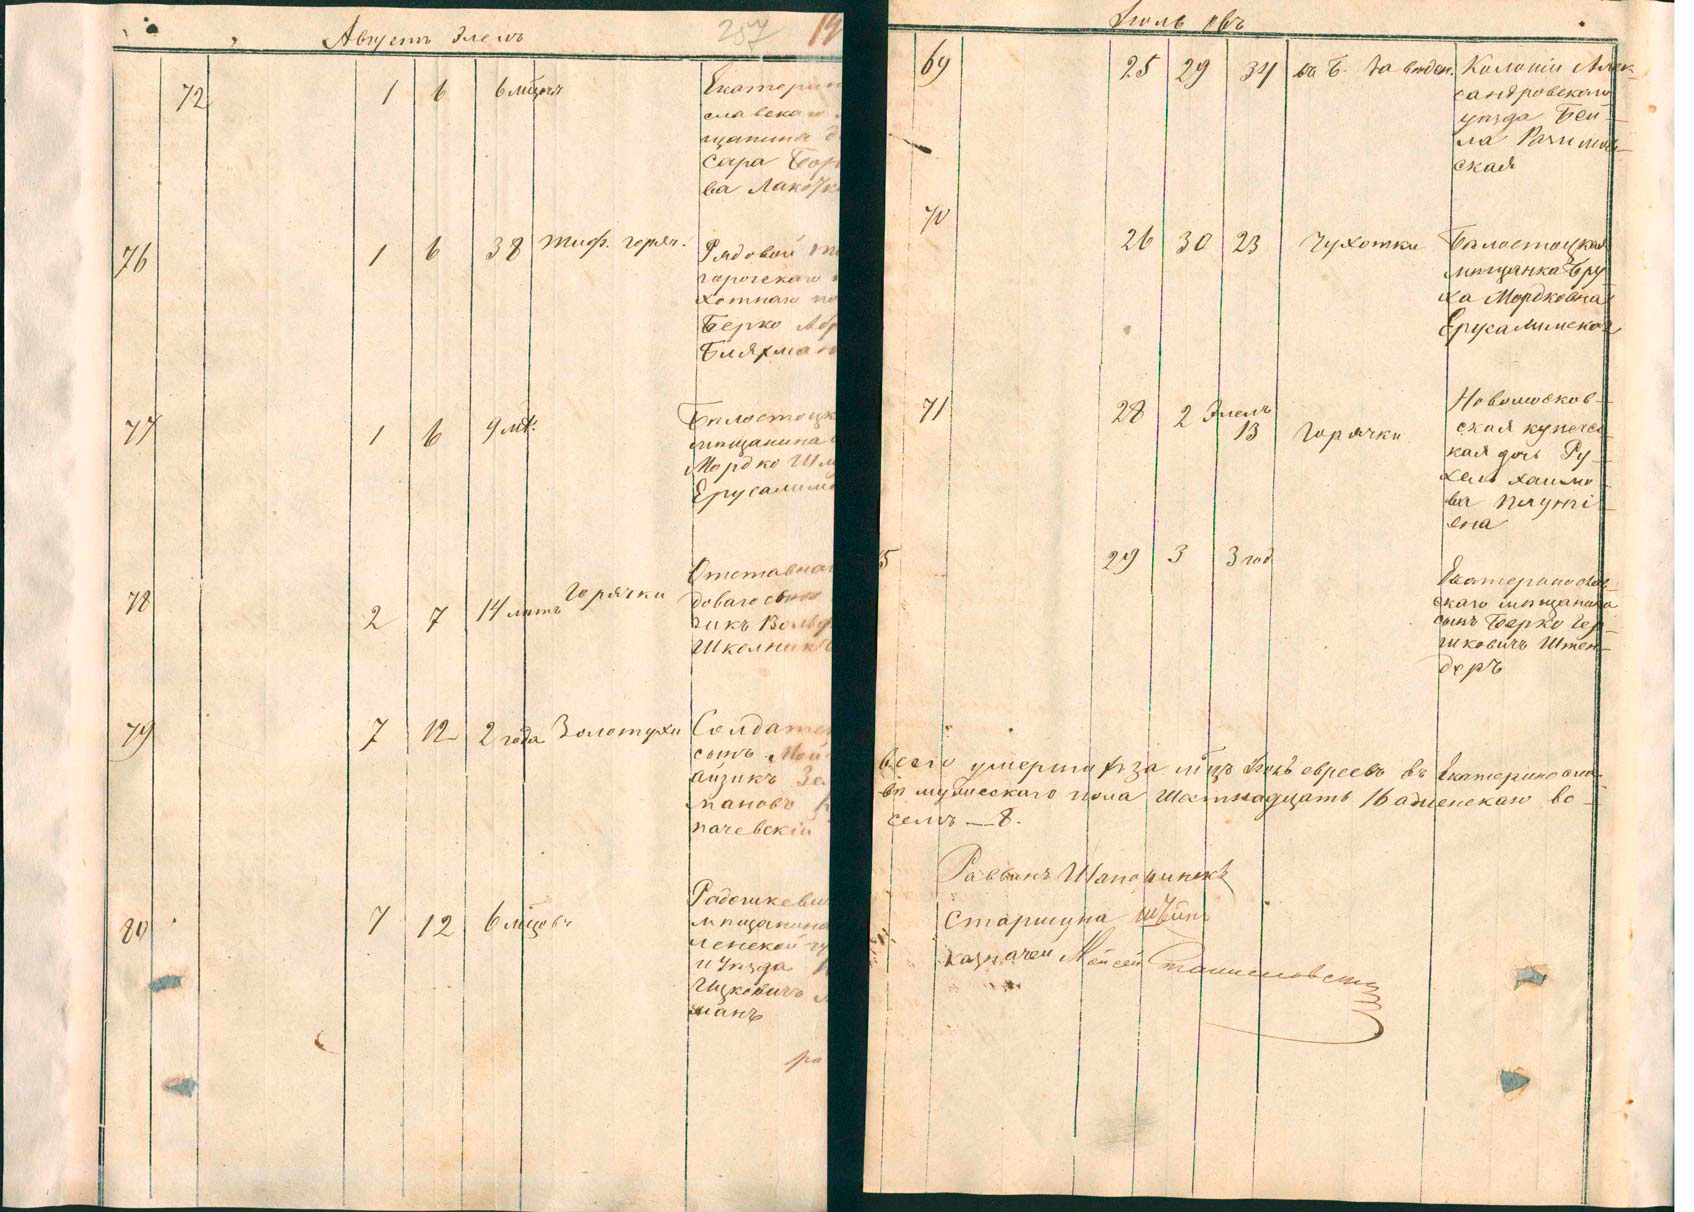 Августъ Элелъ
257
72 1 6 6 мѣцевъ Екатерин
славскаго
щанина
Сара Бор
ва Лако
76 1 6 38 тиф. горяч. Рядовой
горогскаго
хотнаго по
Берко Абр
Бляхман
77 1 6 9 мѣс. Бѣлостоцк
мѣщанина
Мордко Шл
Ерусалимс
78 2 7 14 лѣтъ Горячки Отставнаг
доваго сынъ
чикъ Вольф
Школникъ
79 7 12 2 года Золотухи Солдатс
сынъ Мой
айзикъ За
мановъ
пачевскій
80 7 12 6 мѣцовъ Радошкеви
мѣщанина
ленской гу
и уѣзда
Ицковичъ
манъ
ра
Іюль Овъ
69 25 29 34 Колоніи Алек-
сандровскаго
уѣзда Бей-
ла Рачимов-
ская
70 26 30 23 Чухотки Бѣлостоцкая
мѣщанка Бру
ха Мордковна
Ерусалимская
71 28 2 Элелъ 13 Горячки Новомосков-
ская купечес-
кая дочь Ру-
хель Хаимо-
ва
ена
5 29 3 3 год Екатеринослав-
скаго мѣщанина
сынъ Берко Гер-
шковичъ Штен-
деръ
всего умерши за мѣцъ Іюль евреевъ въ Екатеринослав-
вѣ мужескаго пола Шестнадцать 16 аженскаго во-
семъ — 8.
Раввинъ Шапошник
Старшина
казначей Мойсей Станиславски